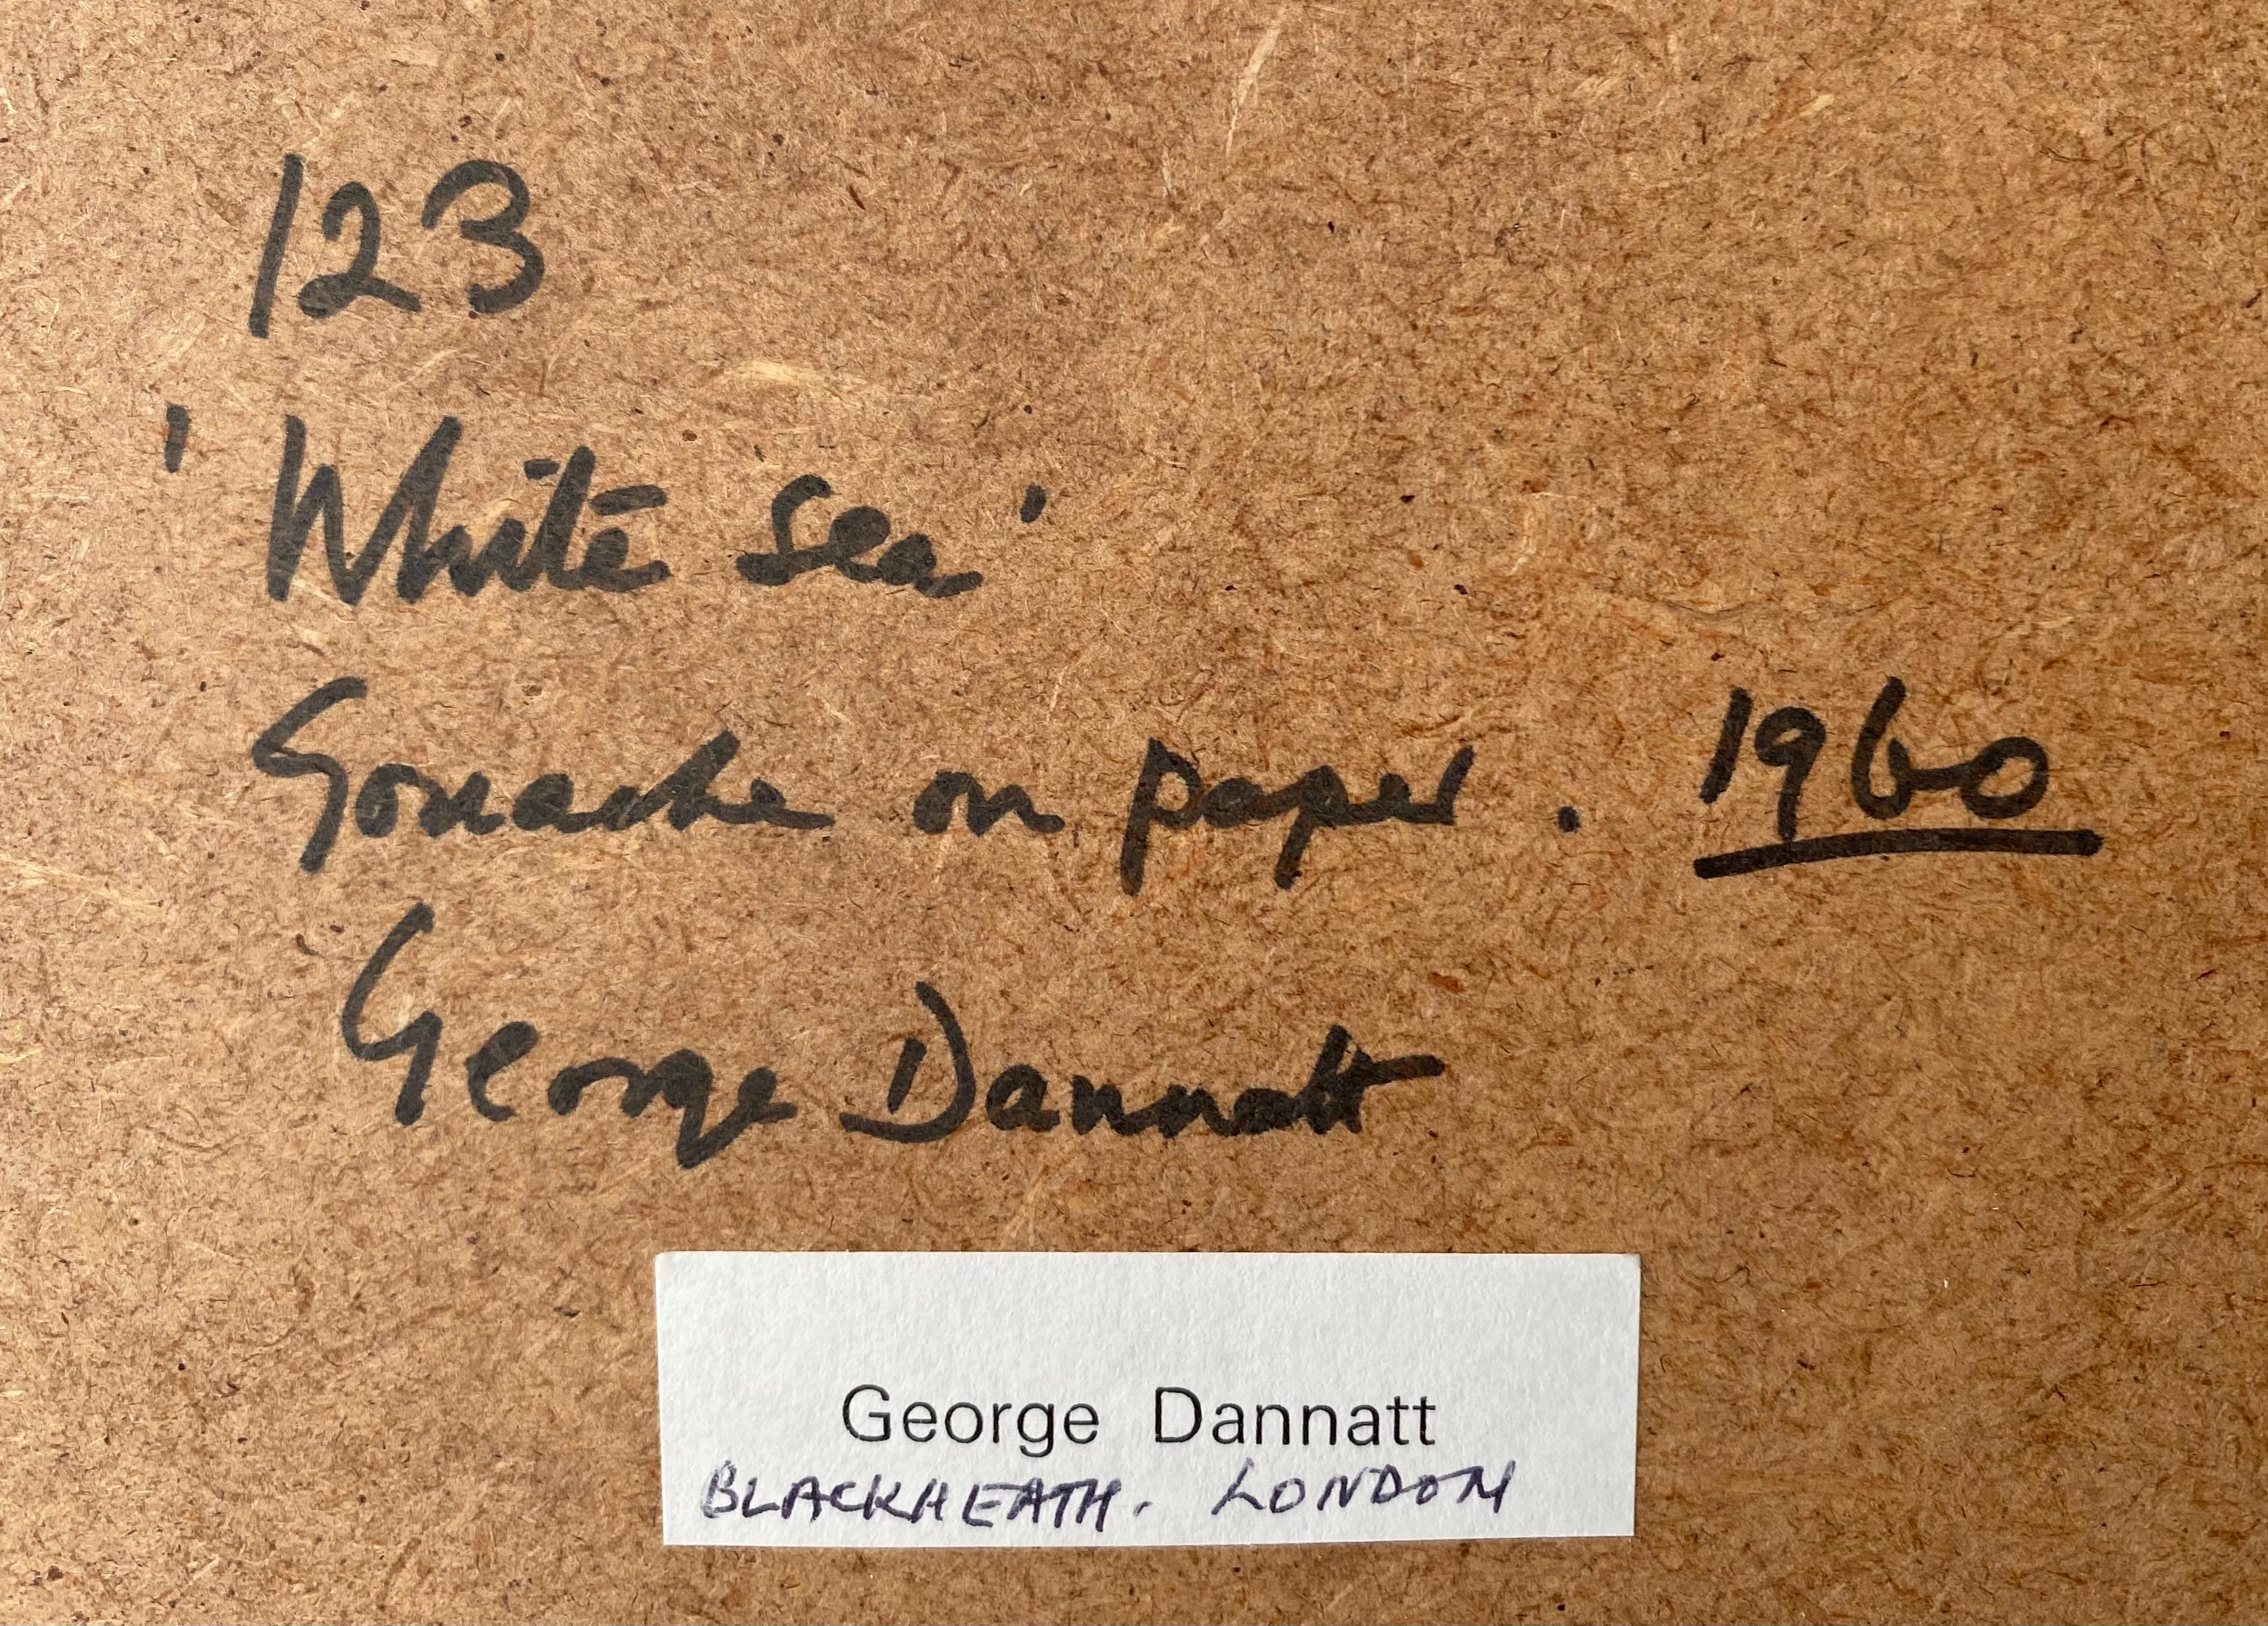 123
'White sea'
Gouache on paper. 1960
George Dannatt
George Dannatt
BLACKHEATH. LONDON